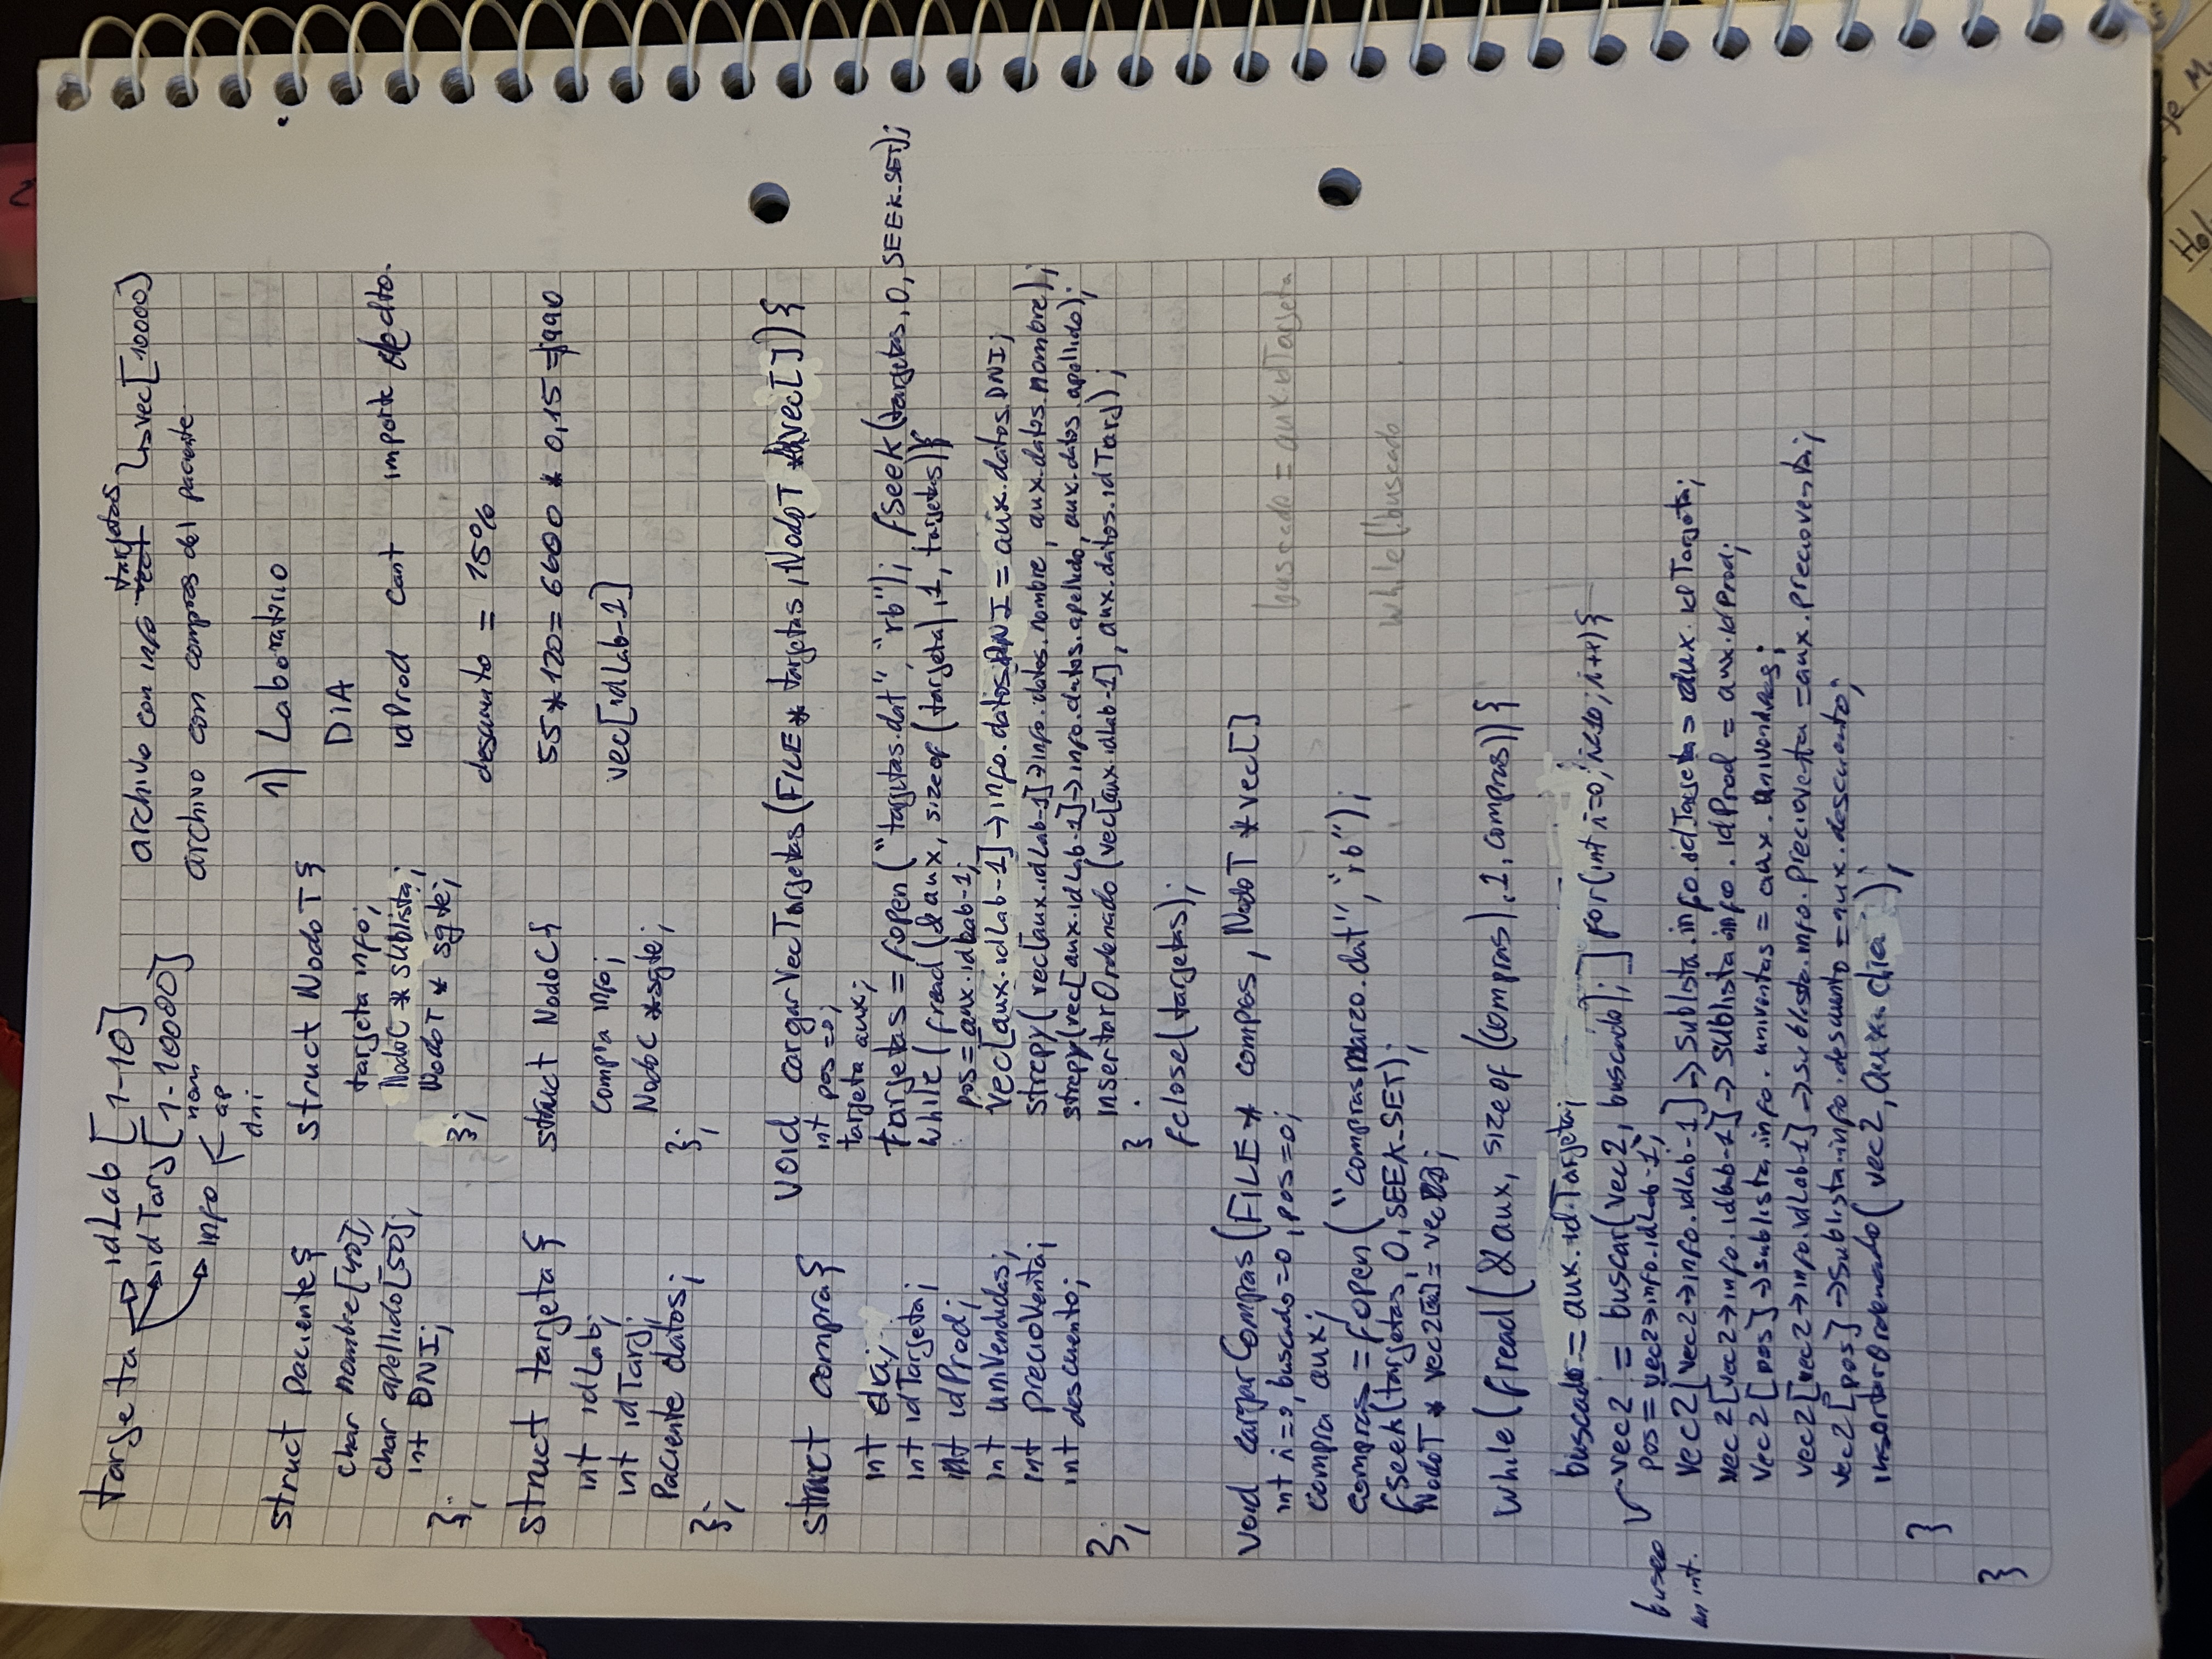 targeta idLab [1-10]
idTarg [1-10000]
info nom
ap
dni
archivo con info tarjetas vec[10000]
archivo con compras del paciente
struct paciente{
char nombre[40];
char apellido[50];
int DNI;
};
struct NodoT{
targeta info;
NodoC * sublista;
NodoT * sgte;
};
1) Laboratorio
DIA
idProd Cant importe dto.
descuento = 15%
55*120= 6600 * 0,15 = 990
vec[idLab-1]
struct tarjeta{
int idLab;
int idTarj;
Paciente datos;
};
struct NodoC{
compra info;
NodoC *sgte;
};
struct compra{
int dia;
int idTarjeta;
int idProd;
int univendidas;
int precioVenta;
int descuento;
};
void cargarVecTarjetas(FILE* tarjetas, NodoT * vec[]){
int pos =0;
tarjeta aux;
tarjetas = fopen("tarjetas.dat", "rb"); fseek(tarjetas, 0, SEEK_SET);
while( fread (&aux, sizeof(tarjeta),1, tarjetas)){
pos = aux.idLab-1;
vec[aux.idLab-1]->info.datos.DNI = aux.datos.DNI;
strcpy( vec[aux.idLab-1]->info.datos.nombre, aux.datos.nombre);
strcpy(vec[aux.idLab-1]->info.datos.apellido, aux.datos.apellido);
insertarOrdenado (vec[aux.idLab-1], aux.datos.idTarj);
}
fclose(tarjetas);
void cargarCompras(FILE* compras, NodoT *vec[]
int i=0, buscado=0, pos=0;
compra aux;
compras = fopen("comprasmarzo.dat", "rb");
fseek(tarjetas, 0, SEEK_SET);
NodoT * vec2 = vec ;
buscado = aux.idTarjeta
while(!buscado
while(fread(&aux, sizeof(compras),1,compras)){
buscado = aux.idTarjeta;
vec2 = buscar(vec2, buscado); ] for(int i=0; i<10; i++){
busco
un int.
pos = vec2->info.idLab-1;
vec2[vec2->info.idLab-1]->sublista.info.idTarjeta = aux.idTarjeta;
vec2[vec2->info.idLab-1]->sublista.info.idProd = aux.idProd;
vec2[pos]->sublista.info.univentas = aux.univendidas;
vec2[vec2->info.idLab-1]->sublista.info.precioventa = aux.precioventa;
vec2[pos]->sublista.info.descuento = aux.descuento;
insertarOrdenado( vec2, aux.dia );
}
}